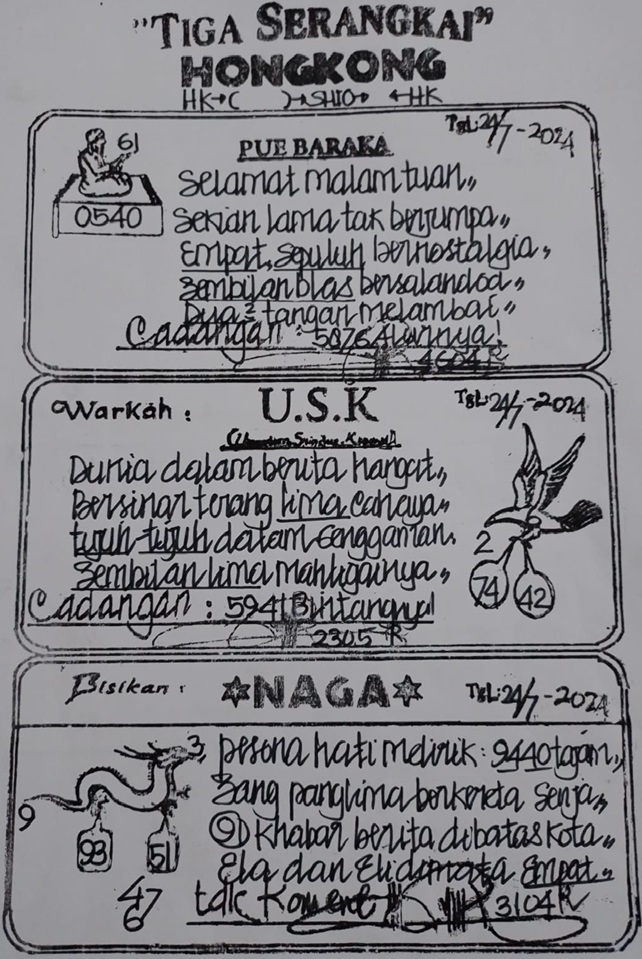 "TIGA SERANGKAI"
HONGKONG
HK→C SHIO→ ←HK
Tgl: 24/7 - 2024
61
0540
PUE BARAKA
Selamat malam tuan,,
Sekian lama tak berjumpa,,
Empat, sepuluh bernostalgia,,
Sembilan blas bersalandoa,,
Dua² tangan melambai,,
Cadangan : 5076
4604 R
Warkah :
U.S.K
Tgl: 24/7 - 2024
Dunia dalam berita hangat,,
Bersinar terang lima cahaya,,
tujuh-tujuh dalam genggaman,
Sembilan lima mahligainya,,
Cadangan : 5941 Bintangnya!
2305 R
2
74
42
Bisikan :
NAGA
Tgl: 24/7 - 2024
3
9
93
51
47
6
pesona hati melirik : 9440 tajam,,
Sang panglima berkereta senja,,
91 Khabar berita dibatas kota,,
Ela dan Eli dimata Empat,,
tdk Koment
3104 R